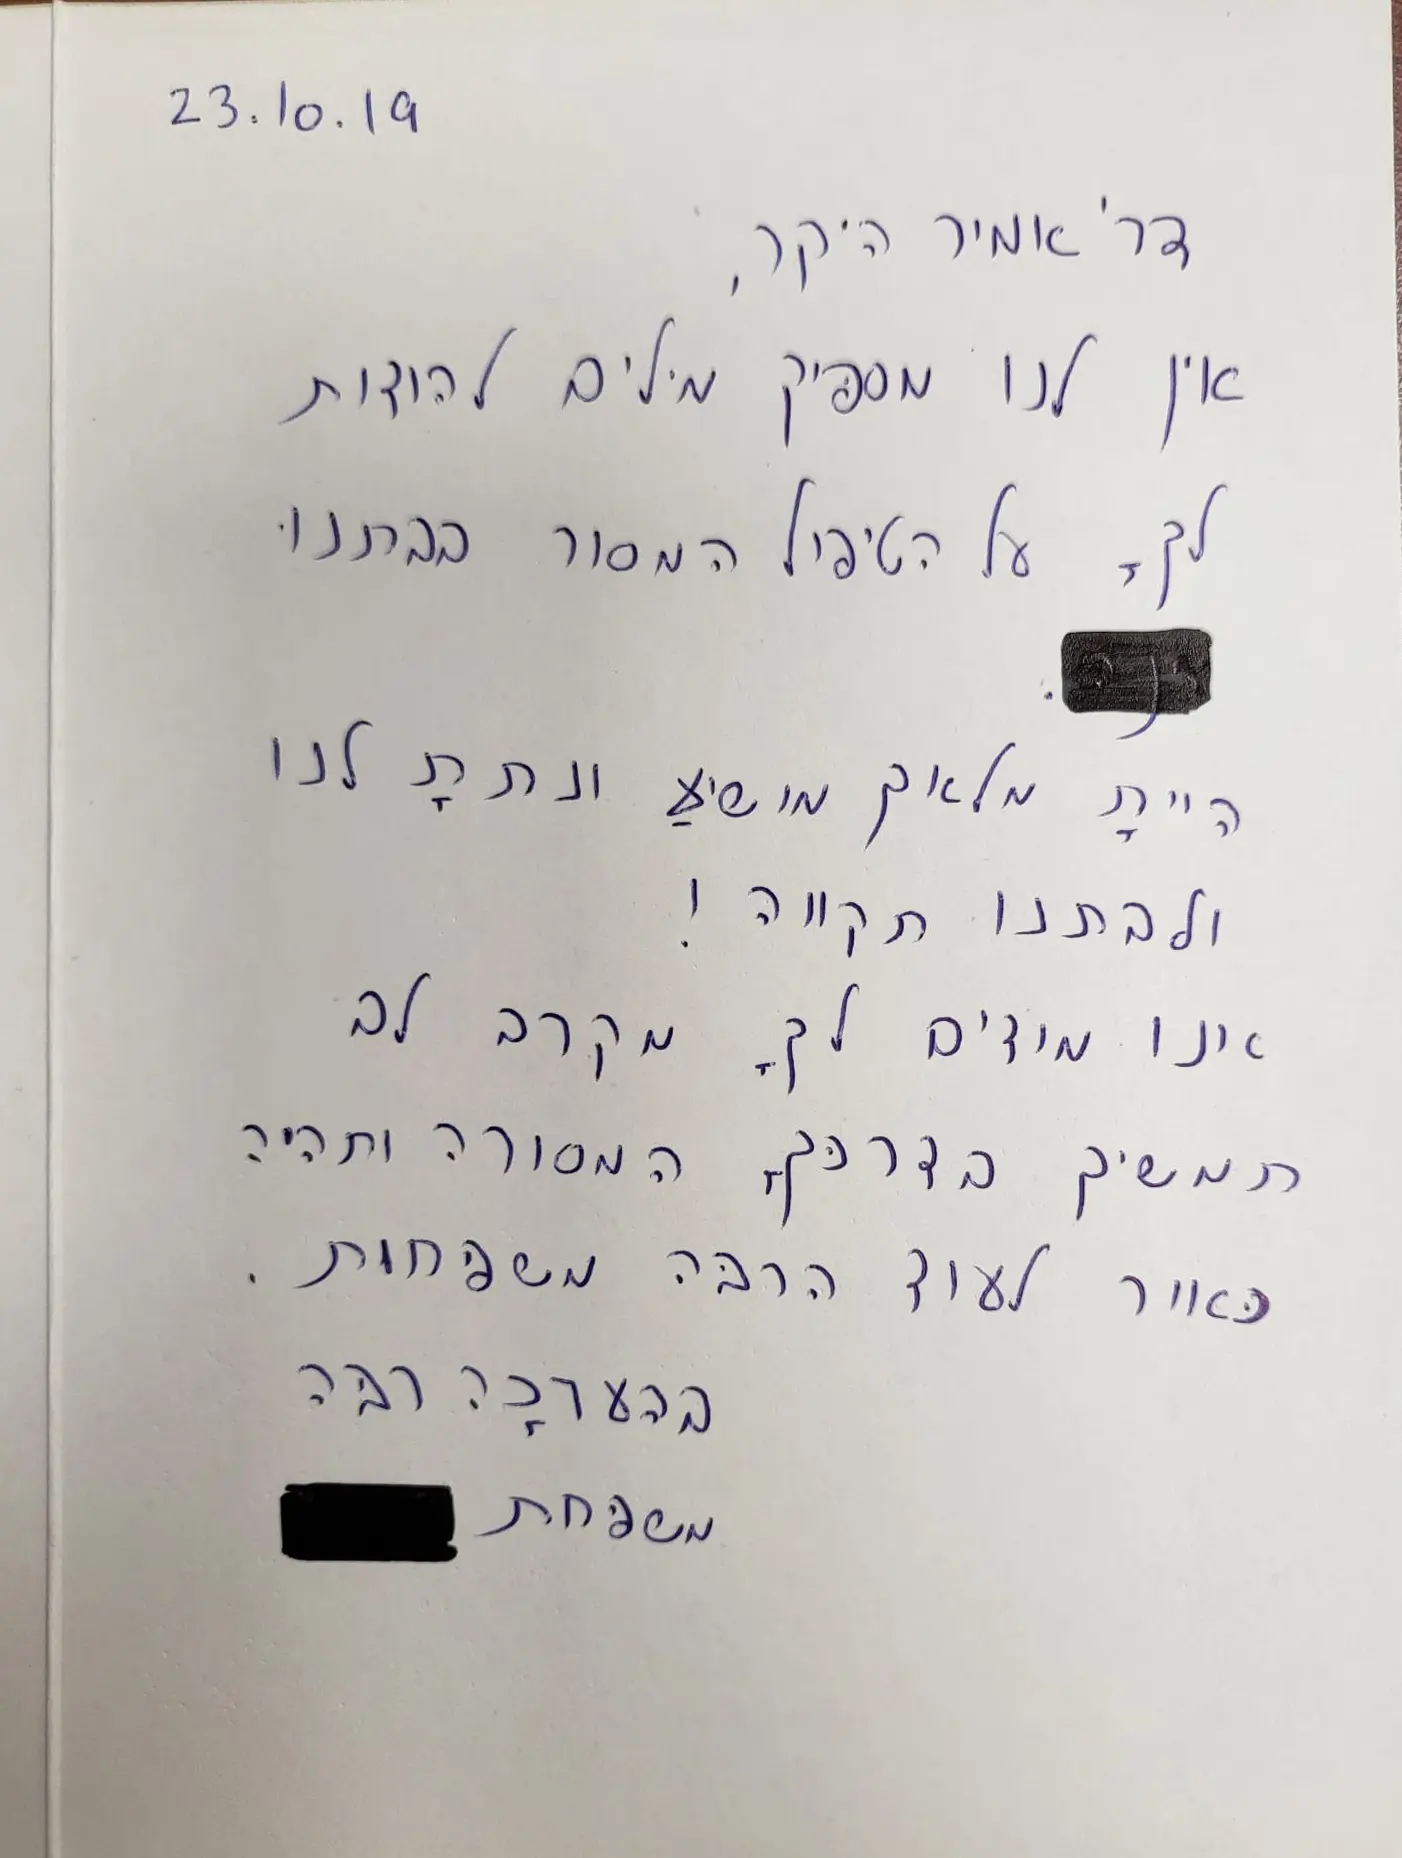 23.10.19
דר' אמיר היקר,
אין לנו מספיק מילים להודות
לךָ על הטיפול המסור בבתנו
.
הייתָ מלאך מושיעַ ונתתָ לנו
ולבתנו תקווה!
אינו מודים לךָ מקרב לב
תמשיך בדרכךָ המסורה ותהיה
כאוויר לעוד הרבה משפחות.
בהערכָה רבה
משפחת